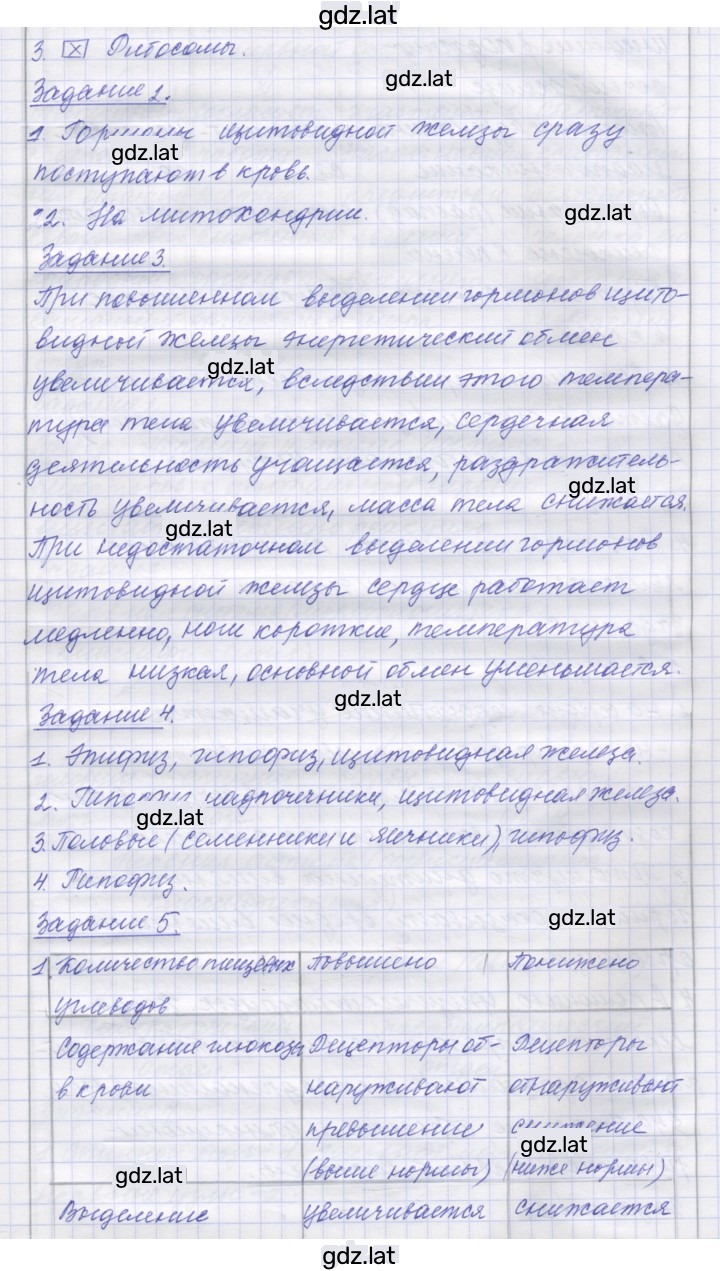 gdz.lat
3. ☒ Фитосомы.
gdz.lat
Задание 2.
1. Гормоны щитовидной железы сразу
gdz.lat
поступают в кровь.
2. На митохондрии.
gdz.lat
Задание 3.
При повышенном выделении гормонов щито-
видной железы энергетический обмен
gdz.lat
увеличивается, вследствии этого темпера-
тура тела увеличивается, сердечная
деятельность учащается, раздражитель-
gdz.lat
ность увеличивается, масса тела снижается.
gdz.lat
При недостаточном выделении гормонов
щитовидной железы сердце работает
медленно, ноги короткие, температура
тела низкая, основной обмен уменьшается.
gdz.lat
Задание 4.
1. Эпифиз, гипофиз, щитовидная железа.
2. Гипофиз, надпочечники, щитовидная железа.
gdz.lat
3. Половые (семенники и яичники), гипофиз.
4. Гипофиз.
gdz.lat
Задание 5.
1 Количество пищевых Повышено Понижено
углеводов
Содержание глюкозы Рецепторы об- Рецепторы
в крови наруживают обнаруживают
превышение снижение
gdz.lat
(выше нормы) (ниже нормы)
gdz.lat
Выделение увеличивается снижается
gdz.lat